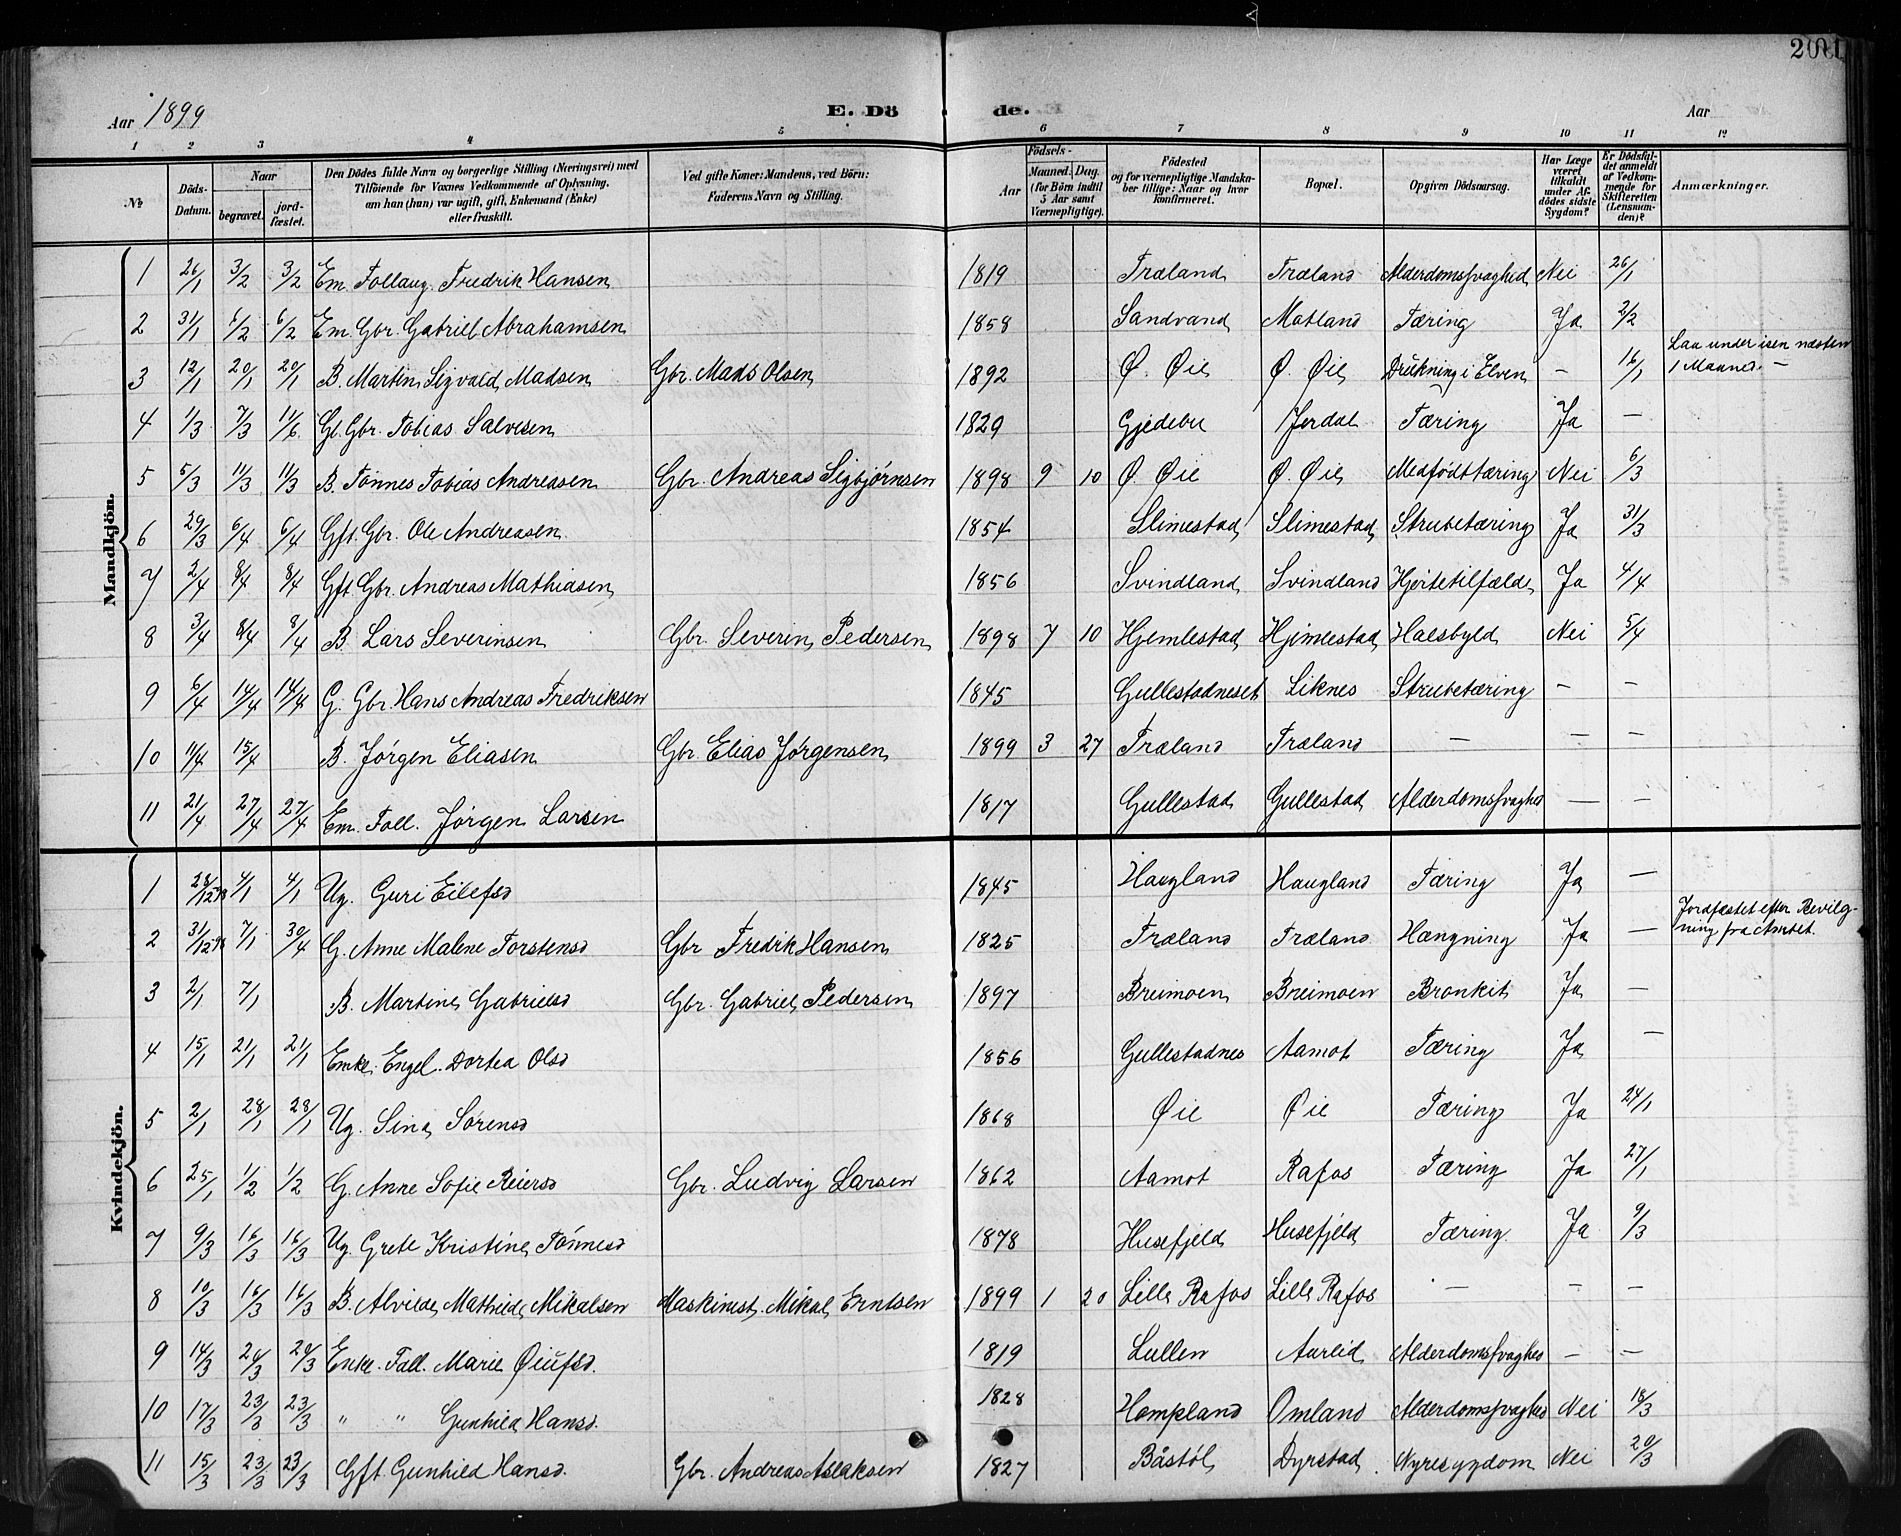 201
Aar 1899 E. Dö de. Aar
1 2 3 4 5 6 7 8 9 10 11 12
№ Döds-Datum. Naar begravet. jord-fæstet. Den Dödes fulde Navn og borgerlige Stilling (Næringsvei) med Tilföiende for Voxnes Vedkommende af Oplysning, om han (hun) var ugift, gift, Enkemand (Enke) eller fraskilt. Ved gifte Koner: Mandens, ved Börn: Faderens Navn og Stilling. Födsels- Aar Maaned. Dag. (for Börn indtil 5 Aar samt Værnepligtige). Födested og for værnepligtige Mandskaber tillige: Naar og hvor konfirmeret. Bopæl. Opgiven Dödsaarsag. Har Læge været tilkaldt under Afdödes sidste Sygdom? Er Dödsfaldet anmeldt af Vedkommende for Skifteretten (Lensmanden)? Anmærkninger.
Mandkjön.
1 26/1 3/2 3/2 Em. Follaug. Fredrik Hansen 1819 Træland Træland Alderdomssvaghed Nei 26/1
2 31/1 6/2 6/2 Em. Gbr. Gabriel Abrahamsen 1858 Sandvand Motland Tæring Ja 2/2
3 12/1 20/1 20/1 B. Martin Sigvald Madsen Gbr. Mads Olsen 1892 Ø. Øie Ø. Øie Drukning i Elven — 16/1 Laa under isen næsten 1 Maaned. —
4 1/3 7/3 11/6 Gl. Gbr. Tobias Salvesen 1829 Gjedebu Jerdal Tæring Ja —
5 5/3 11/3 11/3 B. Tønnes Tobias Andreasen Gbr. Andreas Sigbjørnsen 1898 9 10 Ø. Øie Ø. Øie Medfødt tæring Nei 6/3
6 29/3 6/4 6/4 Gft. Gbr. Ole Andreasen 1854 Slimestad Slimestad Strubetæring Ja 31/3
7 2/4 8/4 8/4 Gft. Gbr. Andreas Mathiasen 1856 Svindland Svindland Hjertetilfælde Ja 4/4
8 3/4 8/4 8/4 B. Lars Severinsen Gbr. Severin Pedersen 1898 7 10 Hjemlestad Hjimlestad Halsbyld Nei 5/4
9 6/4 14/4 14/4 G. Gbr. Hans Andreas Fredriksen 1845 Gullestadneset Liknes Strubetæring — —
10 11/4 15/4 B. Jørgen Eliasen Gbr. Elias Jørgensen 1899 3 27 Træland Træland — — —
11 21/4 27/4 27/4 Em. Foll. Jørgen Larsen 1817 Gullestad Gullestad Alderdomssvaghed — —
Kvindekjön.
1 28/12 98 4/1 4/1 Ug. Guri Eilefsd 1845 Haugland Haugland Tæring Ja —
2 31/12 98 7/1 30/4 G. Anne Malene Torstensd Gbr Fredrik Hansen 1825 Træland Træland Hængning Ja — Jordfæstet efter Bevilgning fra Amtet.
3 2/1 7/1 B. Martine Gabrielsd Gbr. Gabriel Pedersen 1897 Breimoen Breimoen Bronkit Ja —
4 15/1 21/1 21/1 Enke. Engel. Dortea Olsd 1856 Gullestadnes Aamot Tæring Ja —
5 2/1 28/1 28/1 Ug. Sina Sørensd 1868 Øie Øie Tæring Ja 24/1
6 25/1 1/2 1/2 G. Anne Sofie Reiersd Gbr. Ludvig Larsen 1862 Aamot Rafos Tæring Ja 27/1
7 9/3 16/3 16/3 Ug. Grete Kristine Tønnesd 1878 Husefjeld Husefjeld Tæring Ja 9/3
8 10/3 16/3 16/3 B. Alvilde Mathilde Mikalsen Maskinist. Mikal Erntsen 1899 1 20 Lille Rafos Lille Rafos — — —
9 14/3 20/3 Enke. Fall. Marie 1819 Lullen Aureid Alderdomssvaghed — —
10 17/3 23/3 23/3 " " Gunhild Hansd. 1828 Hompland Omland Alderdomssvaghed Nei 18/3
11 15/3 23/3 23/3 Gft. Gunhild Hansd. Gbr. Andreas Aslaksen 1827 Båstøl Dyrstad Nyresygdom Nei 20/3